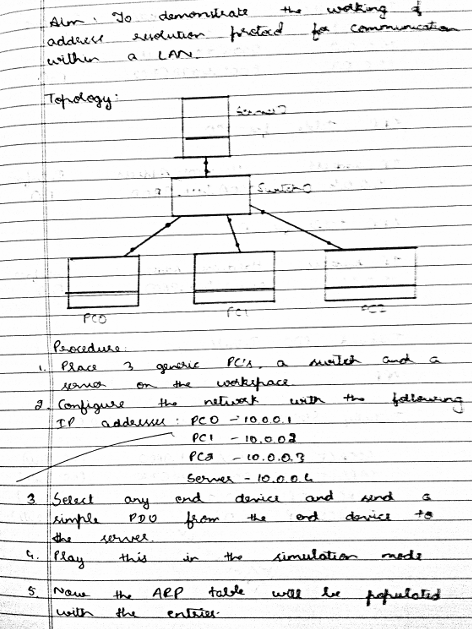 Aim: To demonstrate the working of
address resolution protocol for communication
within a LAN.
Topology:
Server0
Switch0
PC0 PC1 PC2
Procedure:
1. Place 3 generic PC's, a switch and a
server on the workspace.
2. Configure the network with the following
IP addresses: PC0 - 10.0.0.1
PC1 - 10.0.0.2
PC2 - 10.0.0.3
Server - 10.0.0.4
3 Select any end device and send a
simple PDU from the end device to
the server.
4. Play this in the simulation mode
5 Now the ARP table will be populated
with the entries.